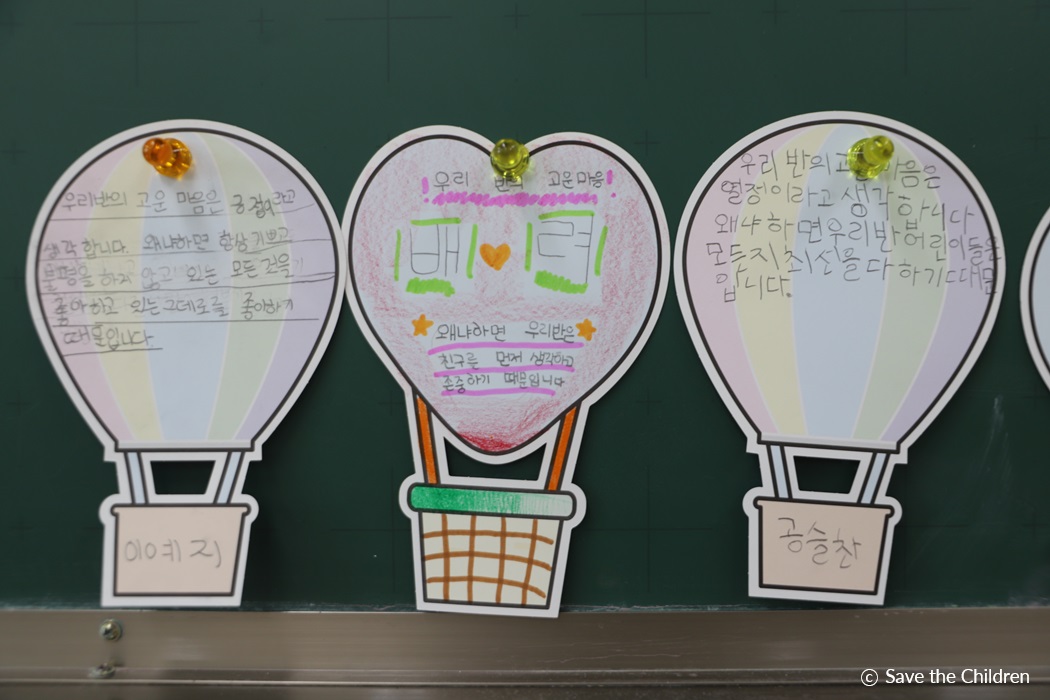 우리반의 고운 마음은 긍정이라고
생각 합니다. 왜냐하면 항상 기쁘고
불평을 하지 않고 있는 모든것을
좋아하고 있는그데로를 좋아하기
때문입니다.
이예지
우리 반의 고운마음!
배려
왜냐하면 우리반은
친구를 먼저 생각하고
존중하기 때문입니다
우리 반의 고운 마음은
열정이라고 생각합니다
왜냐하면우리반어린이들은
모든지 최선을다하기때문
입니다.
공슬찬
© Save the Children